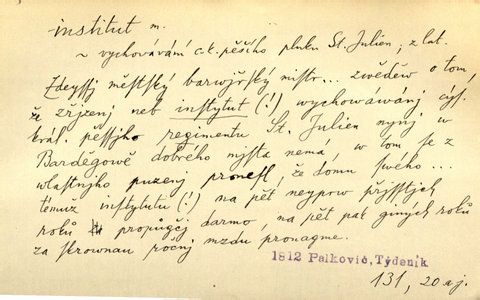 institut m.
~ vychovávání c.k. pěšího pluku St. Julien; z lat.
Zdeyssj městský barwjřský mistr... zwěděw o tom,
že zřjzenj neb instytut (!) wychowáwánj cýs.
král. pěssjho regimentu St. Julien nynj w
Barděgowě dobrého mjsta nemá w tom se z
wlastnjho puzenj pronesl, že domu swého...
témuž instytutu (!) na pět neyprw přjsstjch
roků propůgčj darmo, na pět pak giných roků
za skrownau ročnj mzdu pronagme.
1812 Palkovič, Týdeník
131, 20 a j.